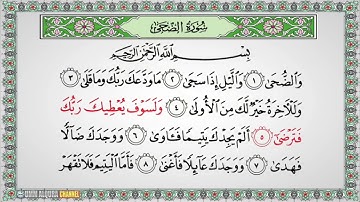 سُورَةُ الضُّحَى
بِسْمِ اللَّهِ الرَّحْمَٰنِ الرَّحِيمِ
وَالضُّحَىٰ ١ وَاللَّيْلِ إِذَا سَجَىٰ ٢ مَا وَدَّعَكَ رَبُّكَ وَمَا قَلَىٰ ٣
وَلَلْآخِرَةُ خَيْرٌ لَّكَ مِنَ الْأُولَىٰ ٤ وَلَسَوْفَ يُعْطِيكَ رَبُّكَ
فَتَرْضَىٰ ٥ أَلَمْ يَجِدْكَ يَتِيمًا فَآوَىٰ ٦ وَوَجَدَكَ ضَالًّا
فَهَدَىٰ ٧ وَوَجَدَكَ عَائِلًا فَأَغْنَىٰ ٨ فَأَمَّا الْيَتِيمَ فَلَا تَقْهَرْ